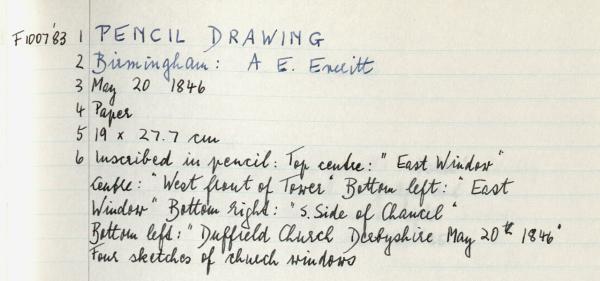 F1007'83 1 PENCIL DRAWING
2 Birmingham: A E. Everitt
3 May 20 1846
4 Paper
5 19 x 27.7 cm
6 Inscribed in pencil: Top centre: "East Window"
Centre: "West front of Tower" Bottom left: "East
Window" Bottom right: "S. Side of Chancel"
Bottom left: "Duffield Church Derbyshire May 20th 1846"
Four sketches of church windows